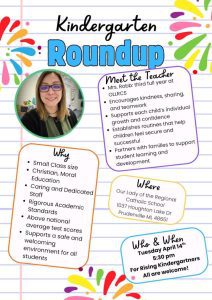 Kindergarten
Roundup
Meet the Teacher
• Mrs. Rabb: third full year at
OLLRCS
• Encourages kindness, sharing,
and teamwork
• Supports each child's individual
growth and confidence
• Establishes routines that help
children feel secure and
successful
• Partners with families to support
student learning and
development
Why
• Small Class size
• Christian, Moral
Education
• Caring and Dedicated
Staff
• Rigorous Academic
Standards
• Above national
average test scores
• Supports a safe and
welcoming
environment for all
students
Where
Our Lady of the Regional
Catholic School
1037 Houghton Lake Dr
Prudenville MI, 48651
Who & When
Tuesday April 14th
5:30 pm
For Rising Kindergartners
All are welcome!